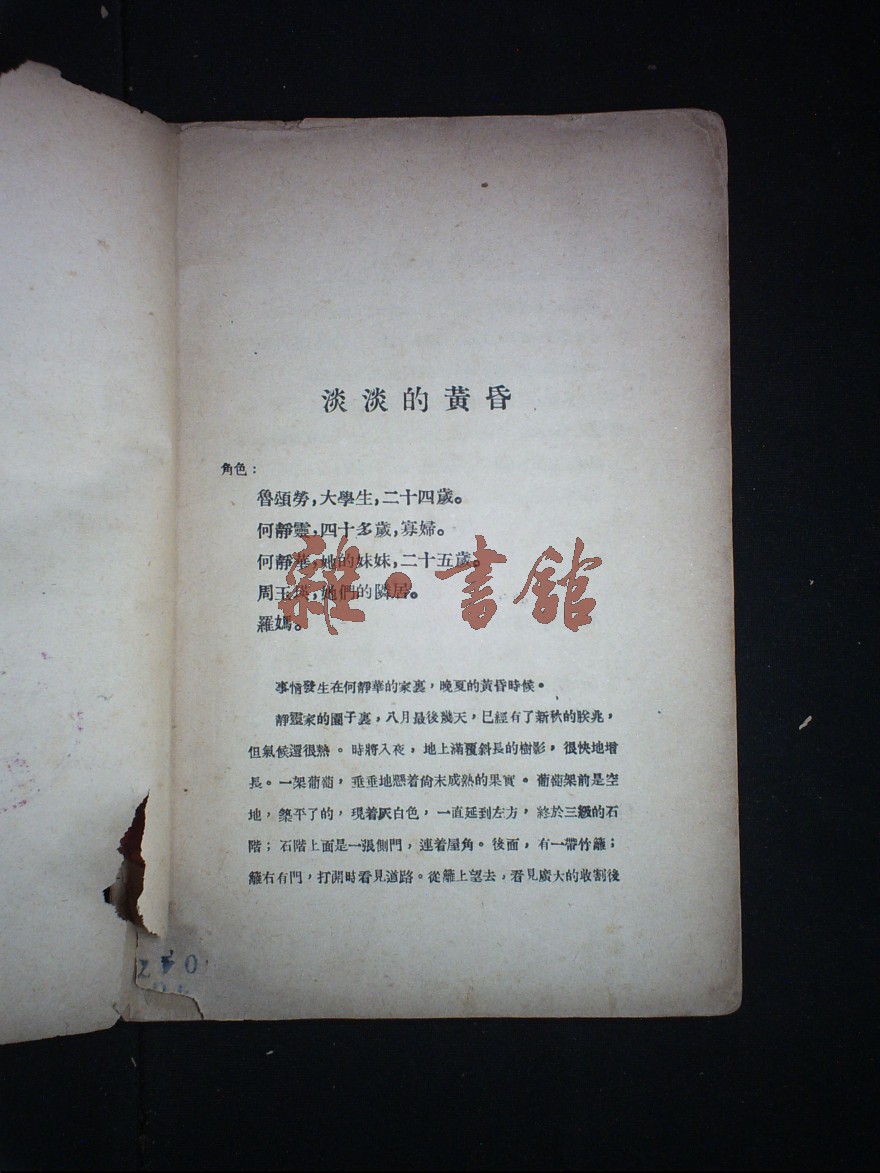 淡淡的黃昏
角色：
魯頌勞，大學生，二十四歲。
何靜靈，四十多歲，寡婦。
何靜華，她的妹妹，二十五歲。
周玉瑛，她們的隣居。
羅媽。
雜·書館
事情發生在何靜華的家裏，晚夏的黃昏時候。
靜靈家的園子裏，八月最後幾天，已經有了新秋的朕兆，
但氣候還很熱。時將入夜，地上滿覆斜長的樹影，很快地增
長。一架葡萄，垂垂地懸着尚未成熟的果實。葡萄架前是空
地，築平了的，現着灰白色，一直延到左方，終於三級的石
階；石階上面是一張側門，連着屋角。後面，有一帶竹籬；
籬右有門，打開時看見道路。從籬上望去，看見廣大的收割後